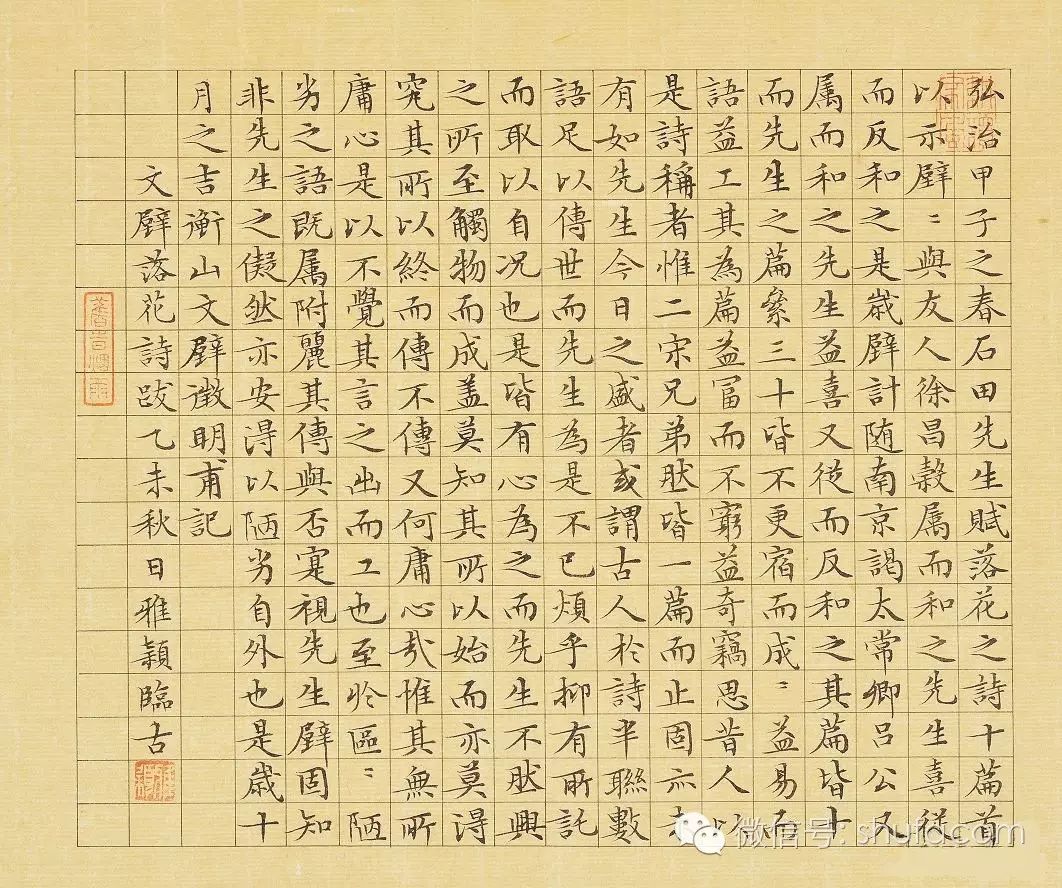 弘治甲子之春石田先生賦落花之詩十篇首
以示璧〻與友人徐昌穀属而和之先生喜從
而反和之是歳璧計随南京謁太常卿呂公又
属而和之先生益喜又従而反和之其篇皆十
而先生之篇絫三十皆不更宿而成〻益易而
語益工其為篇益冨而不窮益奇竊思昔人以
是詩稱者惟二宋兄弟肰皆一篇而止固亦未
有如先生今日之盛者或謂古人於詩半聯數
語足以傳世而先生為是不已煩乎抑有所託
而取以自况也是皆有心為之而先生不肰興
之所至觸物而成盖莫知其所以始而亦莫得
究其所以終而傳不傳又何庸心哉惟其無所
庸心是以不覺其言之出而工也至於區〻陋
劣之語既属附麗其傳與否寔視先生璧固知
非先生之儗然亦安得以陋劣自外也是歳十
月之吉衡山文璧徵明甫記
文璧落花詩跋乙未秋日雅穎臨古
微信号: shufa.com